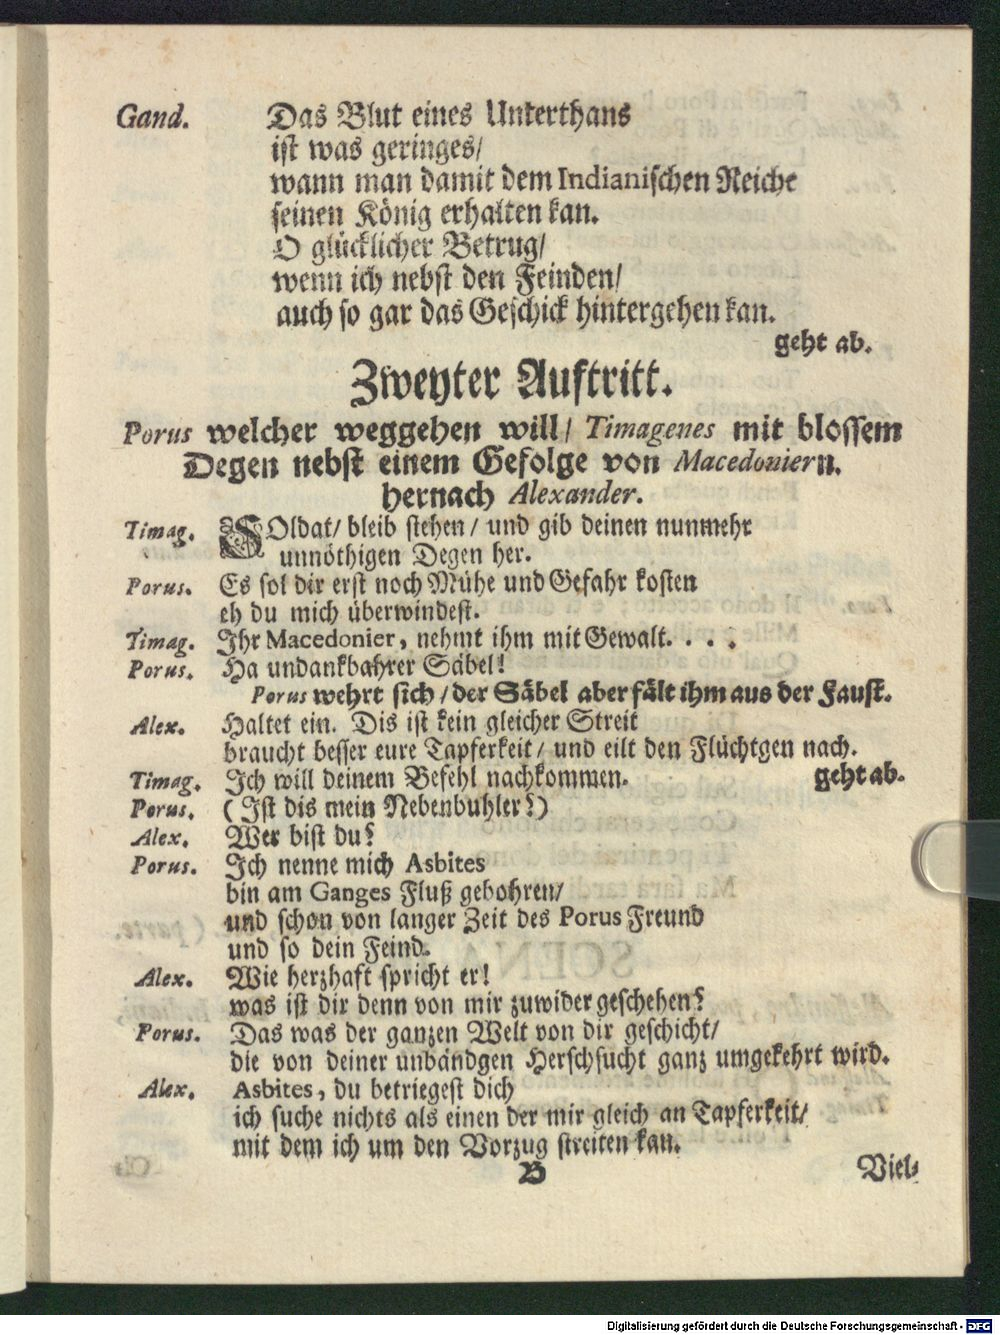 Gand. Das Blut eines Unterthans
ist was geringes/
wann man damit dem Indianischen Reiche
seinen König erhalten kan.
O glücklicher Betrug/
wenn ich nebst den Feinden/
auch so gar das Geschick hintergehen kan.
geht ab.
Zweyter Auftritt.
Porus welcher weggehen will/ Timagenes mit blossem
Degen nebst einem Gefolge von Macedoniern.
hernach Alexander.
Timag. SOldat/ bleib stehen/ und gib deinen nunmehr
unnöthigen Degen her.
Porus. Es sol dir erst noch Mühe und Gefahr kosten
eh du mich überwindest.
Timag. Ihr Macedonier, nehmt ihm mit Gewalt. . . .
Porus. Ha undankbahrer Säbel!
Porus wehrt sich/ der Säbel aber fält ihm aus der Faust.
Alex. Haltet ein. Dis ist kein gleicher Streit
braucht besser eure Tapferkeit/ und eilt den Flüchtgen nach.
Timag. Ich will deinem Befehl nachkommen. geht ab.
Porus. (Ist dis mein Nebenbuhler?)
Alex. Wer bist du?
Porus. Ich nenne mich Asbites
bin am Ganges Fluß gebohren/
und schon von langer Zeit des Porus Freund
und so dein Feind.
Alex. Wie herzhaft spricht er!
was ist dir denn von mir zuwider geschehen?
Porus. Das was der ganzen Welt von dir geschicht/
die von deiner unbändgen Herschsucht ganz umgekehrt wird.
Alex. Asbites, du betriegest dich
ich suche nichts als einen der mir gleich an Tapferkeit/
mit dem ich um den Vorzug streiten kan.
B Viel-
Digitalisierung gefördert durch die Deutsche Forschungsgemeinschaft - DFG